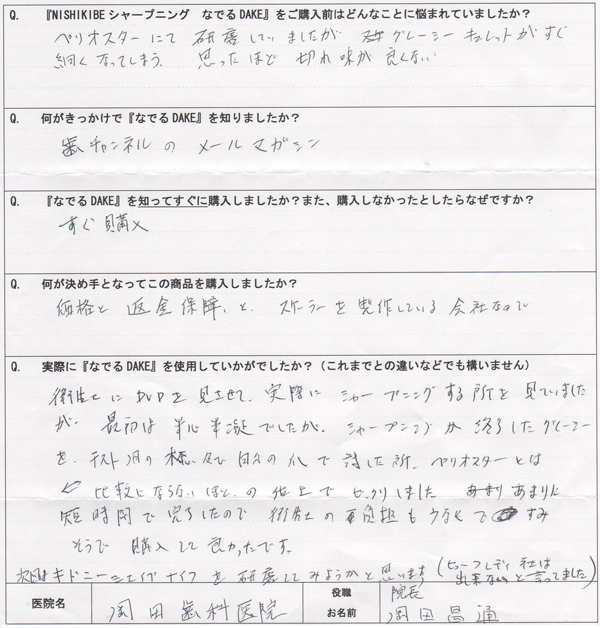 Q. 『NISHIKIBEシャープニング なでるDAKE』をご購入前はどんなことに悩まれていましたか？
ペリオスターにて 研磨していましたが グレーシーキュレットがすぐ
細くなってしまう。 思ったほど 切れ味が良くない
Q. 何がきっかけで『なでるDAKE』を知りましたか？
歯チャンネルの メールマガジン
Q. 『なでるDAKE』を知ってすぐに購入しましたか？また、購入しなかったとしたらなぜですか？
すぐ購入
Q. 何が決め手となってこの商品を購入しましたか？
価格と 返金保障、と、スケーラーを製作している会社なので
Q. 実際に『なでるDAKE』を使用していかがでしたか？（これまでとの違いなどでも構いません）
衛生士にDVDを見させて、実際に シャープニングする所を見ていました
が、最初は半心半疑でしたが、シャープニングが終了したグレーシー
を、テスト用の棒、及び自分の爪で試した所、ペリオスターとは
比較にならないほど、の仕上でビックリしました あまりに
短時間で完了したので 衛生士の負担も少なくて すみ
そうで 購入して良かったです。
次回はキドニーシェイプナイフを研磨してみようかと思います（ヒューフレディ社は
出来ないと言ってました）
医院名 岡田歯科医院
役職 院長
お名前 岡田昌通